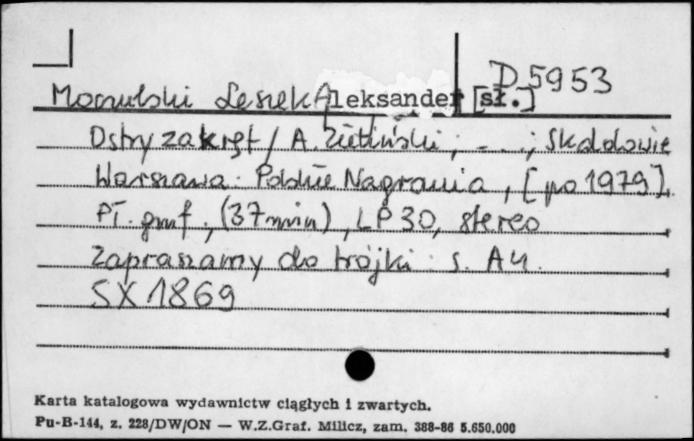 D 5953
Moczulski Leszek Aleksander [sł.]
Ostry zakręt / A. Zieliński ; - . . ; Skaldowie
Warszawa : Polskie Nagrania, [po 1979].
Pł. gmf., (37 min), LP 30, stereo
Zapraszamy do trójki : s. A4.
SX 1869
Karta katalogowa wydawnictw ciągłych i zwartych.
Pu-B-144, z. 228/DW/ON — W.Z.Graf. Milicz, zam. 388-86 5.650.000